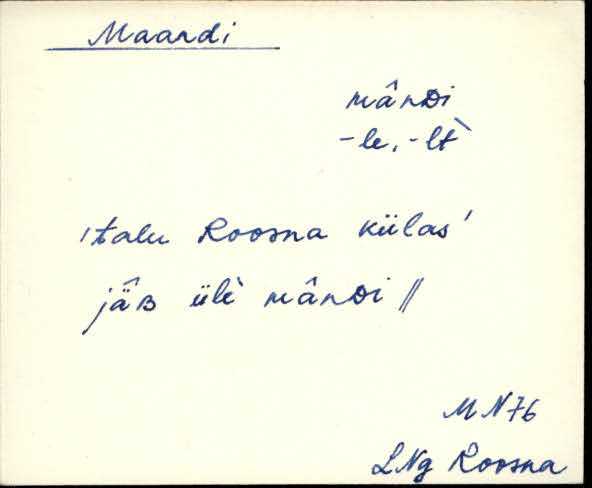 Maandi
mânᴅi
-le, -lt̀
'talu Roosna külas'
jä̂ʙ ülè mânᴅi //
MN76
LNg Roosna